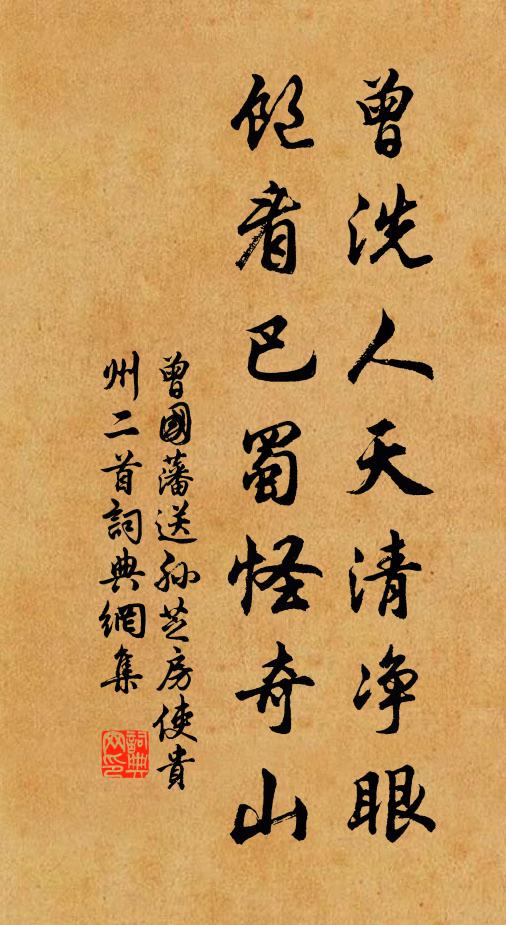 曾洗人天清净眼
飽看巴蜀怪奇山
曾國藩送孙芝房使貴
州二首詞典網集
詞典网印